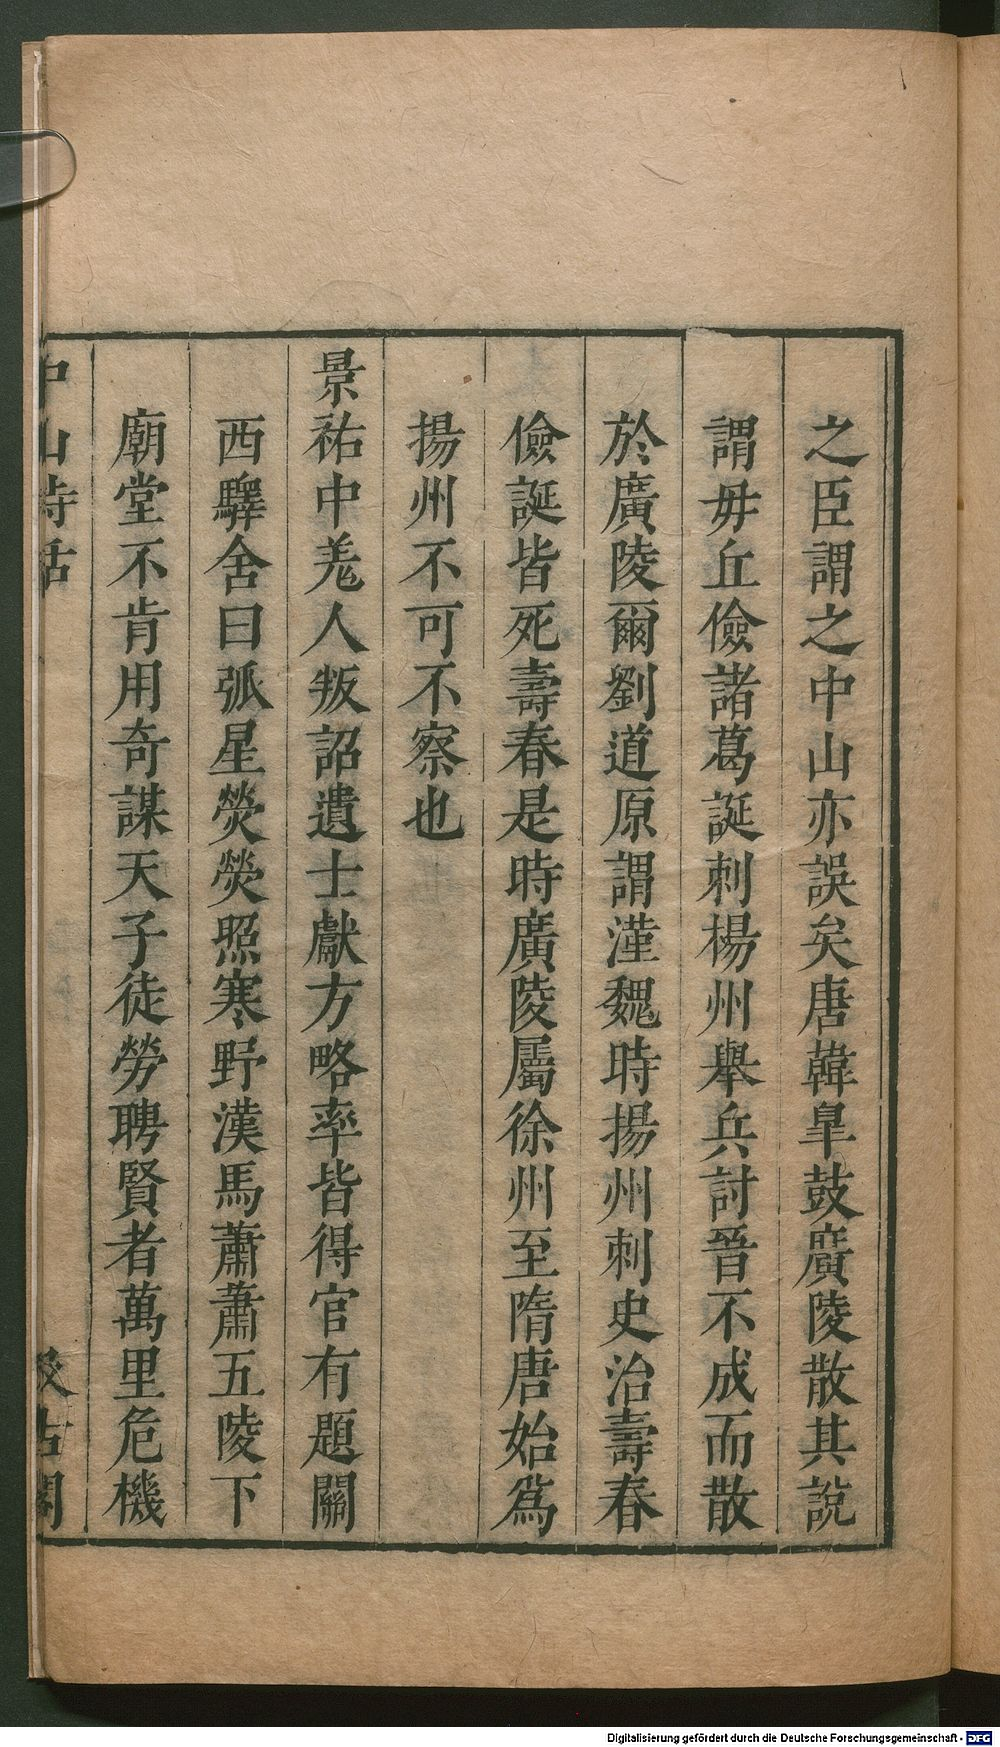 之臣謂之中山亦誤矣唐韓臯鼓廣陵散其說
謂毋丘儉諸葛誕刺楊州舉兵討晉不成而散
於廣陵爾劉道原謂漢魏時揚州刺史治壽春
儉誕皆死壽春是時廣陵屬徐州至隋唐始爲
揚州不可不察也
景祐中羗人叛詔遺士獻方略率皆得官有題關
西驛舍曰弧星熒熒照寒野漢馬蕭蕭五陵下
廟堂不肯用奇謀天子徒勞聘賢者萬里危機
中山詩話
汲古閣
Digitalisierung gefördert durch die Deutsche Forschungsgemeinschaft - DFG